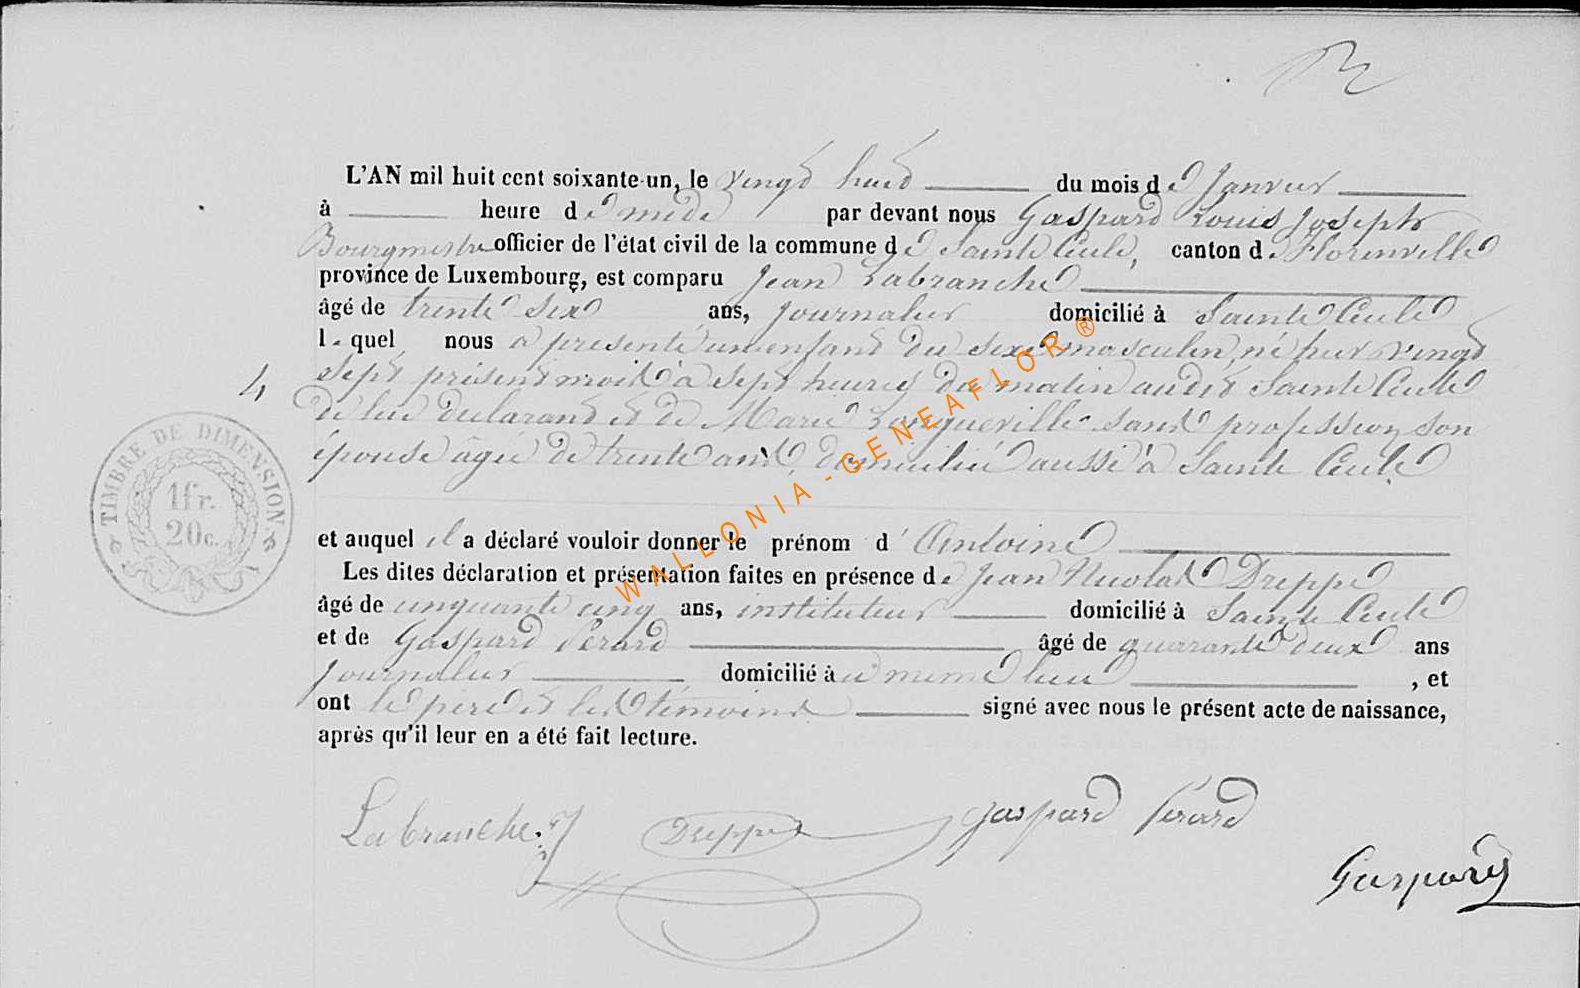 L'AN mil huit cent soixante-un, le vingt huit du mois de Janvier
à heure de midi par devant nous Gaspard Louis Joseph
Bourgmestre officier de l'état civil de la commune de Sainte Cécile, canton de Florenville
province de Luxembourg, est comparu Jean Labranche
âgé de trente six ans, journalier domicilié à Sainte Cécile
lequel nous a présenté un enfant du sexe masculin, né hier vingt
sept présent mois à sept heures du matin audit Sainte Cécile
4
de lui déclarant et de Marie Longueville sans profession son
épouse âgée de trente ans, domiciliée aussi à Sainte Cécile
TIMBRE DE DIMENSION
1fr.
20c.
et auquel il a déclaré vouloir donner le prénom d'Antoine
Les dites déclaration et présentation faites en présence de Jean Nicolas Dreppe
âgé de cinquante cinq ans, instituteur domicilié à Sainte Cécile
et de Gaspard Pérard âgé de quarante deux ans
journalier domicilié à même lieu, et
ont le père et les témoins signé avec nous le présent acte de naissance,
après qu'il leur en a été fait lecture.
Labranche. J
Dreppe
Gaspard Pérard
Gaspard
WALLONIA - GENEAFLOR ®